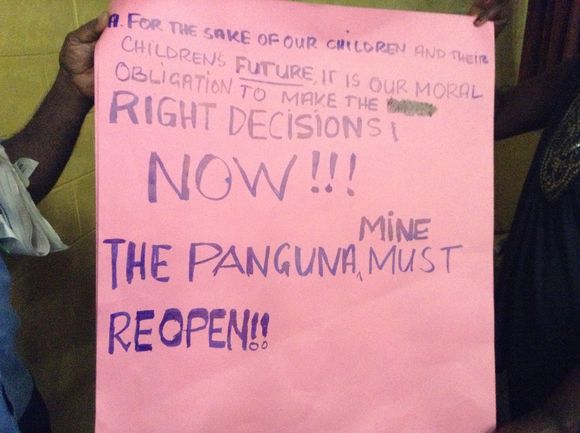 A. FOR THE SAKE OF OUR CHILDREN AND THEIR
CHILDRENS FUTURE, IT IS OUR MORAL
OBLIGATION TO MAKE THE
RIGHT DECISIONS!
NOW!!!
THE PANGUNA MINE MUST
REOPEN!!